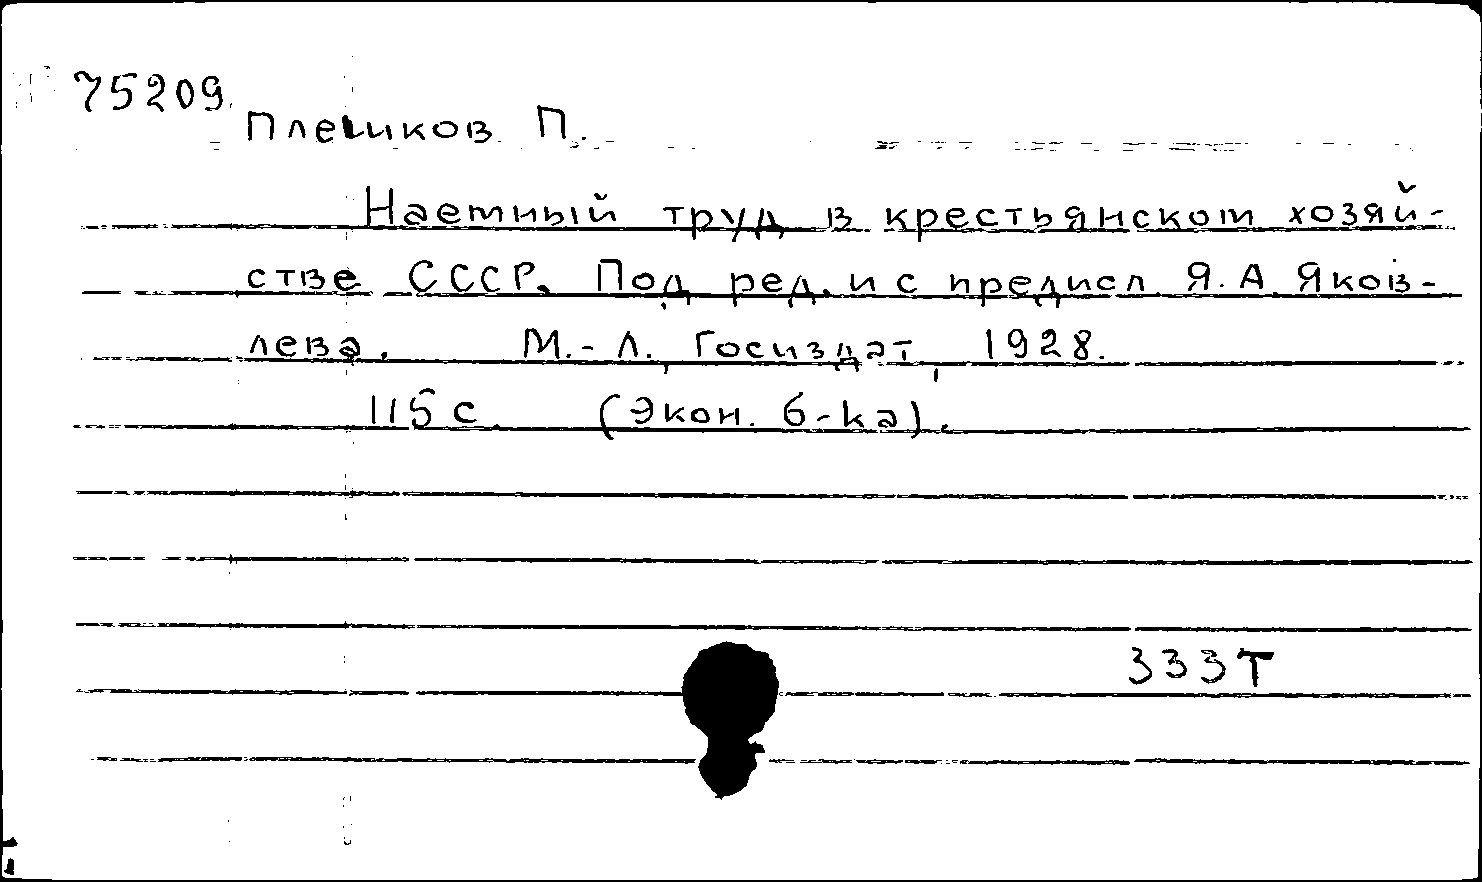 75209.
Плешков П.
Наемный труд в крестьянском хозяй-
стве СССР. Под ред. и с предисл. Я. А. Яков-
лева. М.-Л., Госиздат, 1928.
115 с. (Экон. б-ка).
333Т